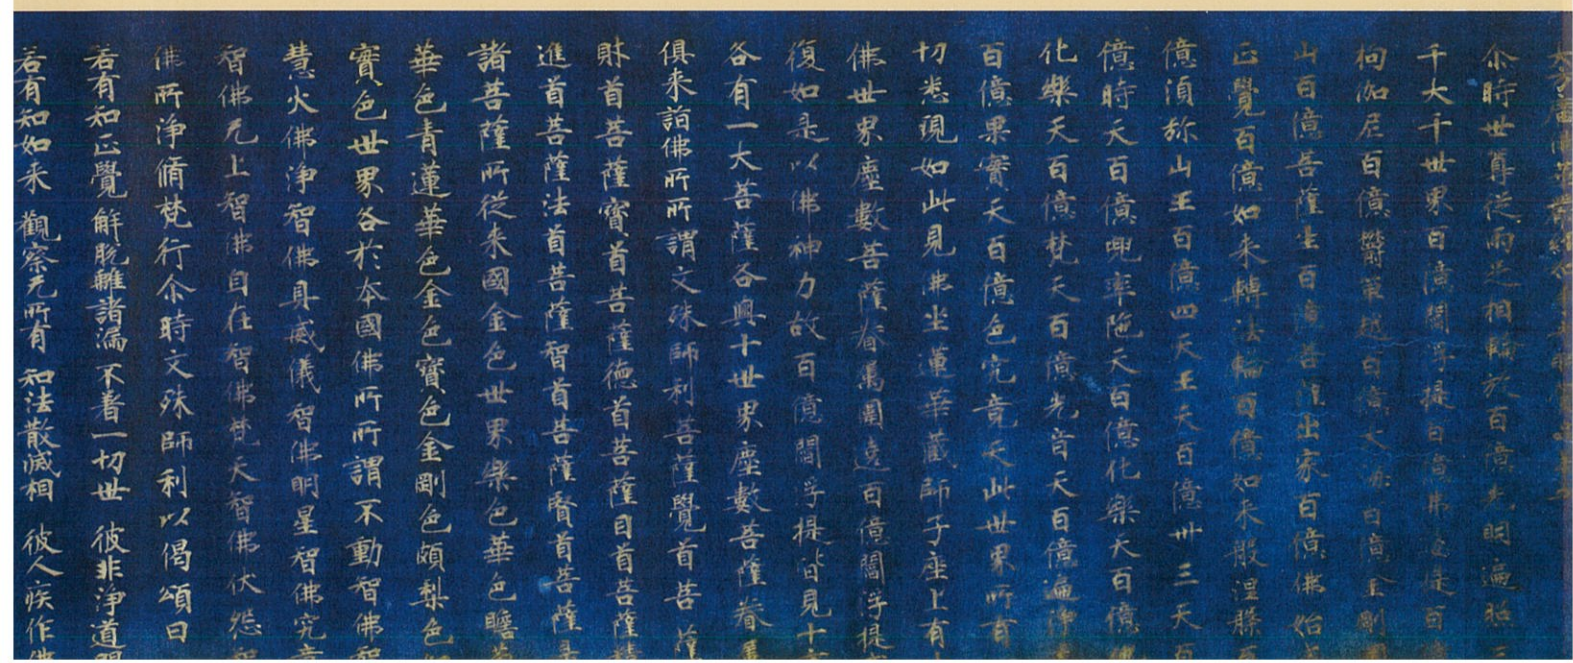 大方廣佛華嚴經如來
尒時世尊從兩足相輪放百億光明遍照三
千大千世界百億閻浮提百億弗婆提百億
拘伽尼百億欝單越百億大海百億金剛圍
山百億菩薩生百億菩薩出家百億佛始成
正覺百億如来轉法輪百億如来般涅槃百
億湏弥山王百億四天王天百億卅三天百
億時天百億兜率陁天百億化樂天百億他
化樂天百億梵天百億光音天百億遍淨天
百億果實天百億色究竟天此世界所有一
切悉現如此見佛坐蓮華藏師子座上有十
佛世界塵數菩薩眷属圍遶百億閻浮提亦
復如是以佛神力故百億閻浮提皆見十方
各有一大菩薩各與十世界塵數菩薩眷属
俱来詣佛所所謂文殊師利菩薩覺首菩薩
財首菩薩寶首菩薩德首菩薩目首菩薩精
進首菩薩法首菩薩智首菩薩賢首菩薩是
諸菩薩所從来國金色世界樂色華色瞻蔔
華色青蓮華色金色寶色金剛色頗梨色如
實色世界各於本國佛所所謂不動智佛智
慧火佛淨智佛具威儀智佛明星智佛究竟
智佛无上智佛自在智佛梵天智佛伏怨智
佛所淨脩梵行尒時文殊師利以偈頌曰
若有知正覺 解脫離諸漏 不著一切世 彼非淨道眼
若有知如来 觀察无所有 知法散滅相 彼人疾作佛